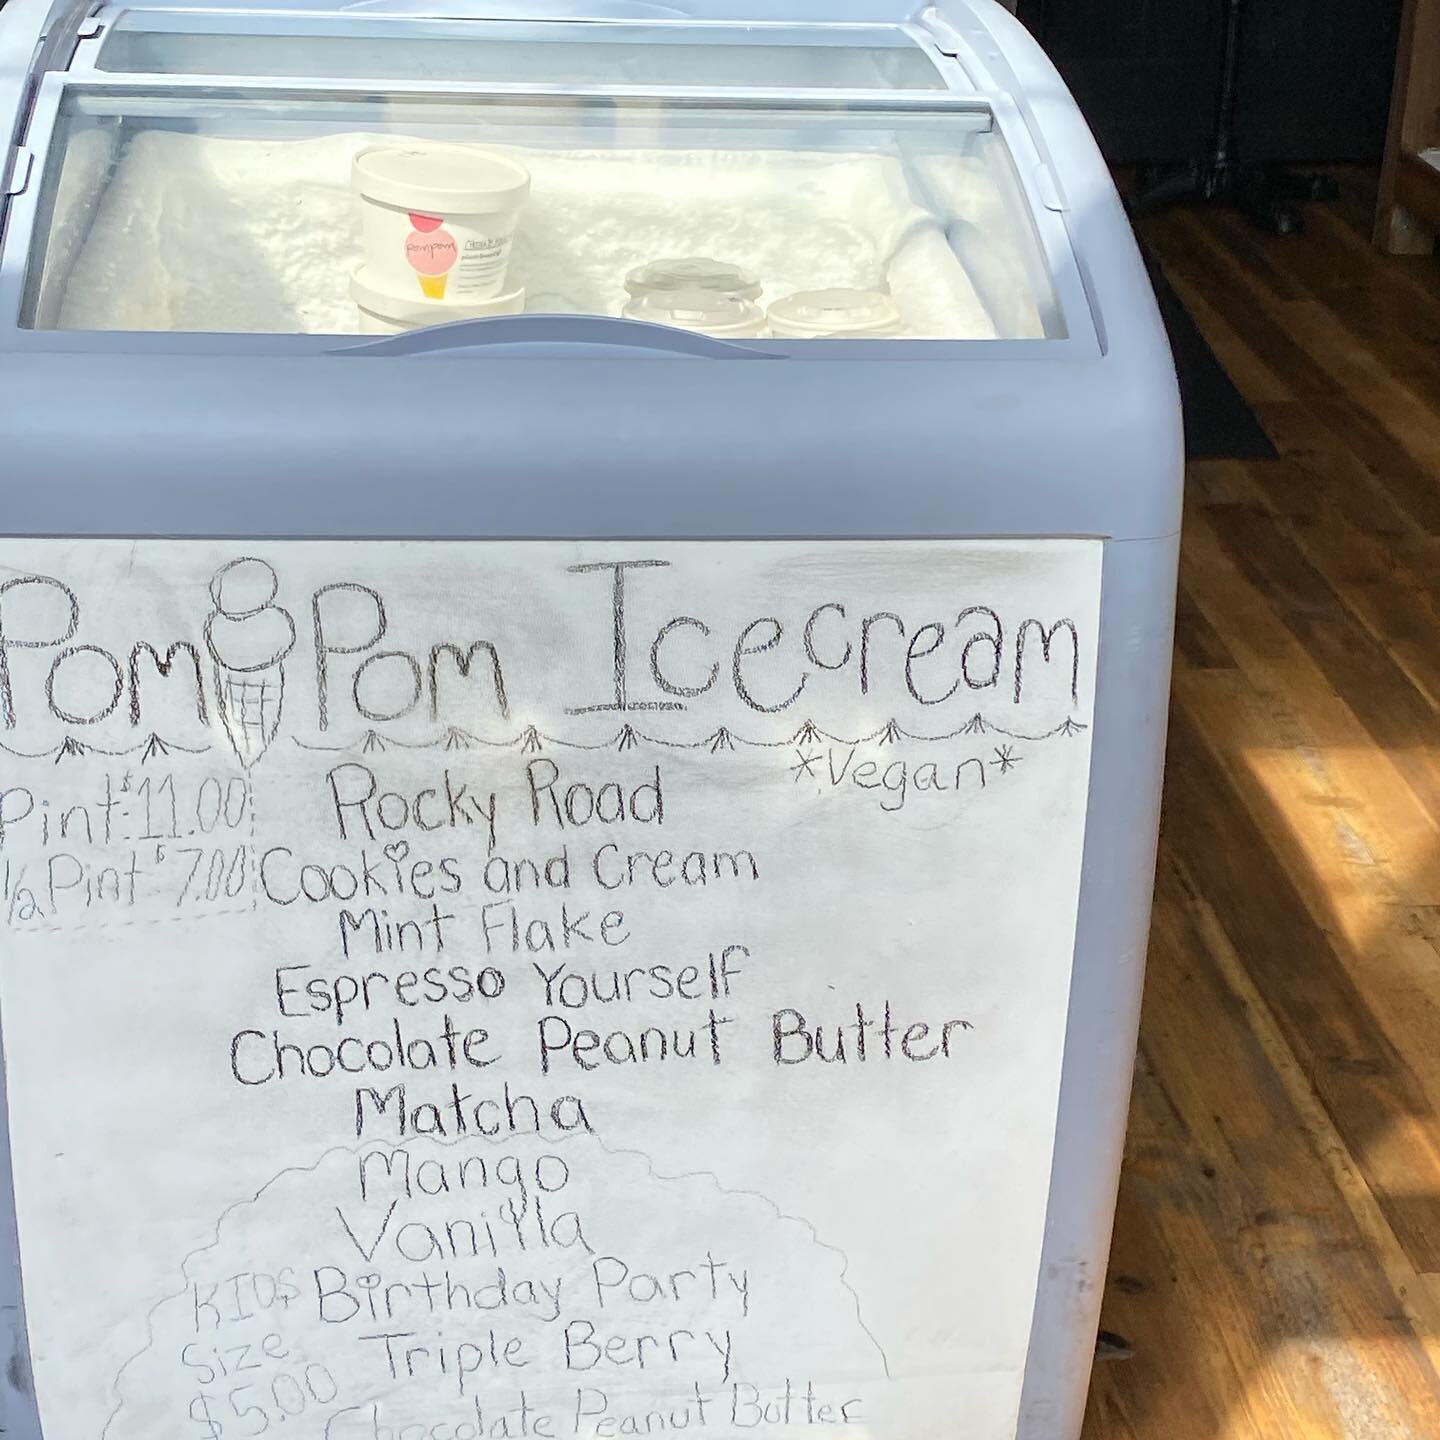 pompom
Pom Pom Icecream
*Vegan*
Pint: $11.00
1/2 Pint $7.00
Rocky Road
Cookies and Cream
Mint Flake
Espresso Yourself
Chocolate Peanut Butter
Matcha
Mango
Vanilla
Birthday Party
Triple Berry
Chocolate Peanut Butter
KIDS
Size
$5.00